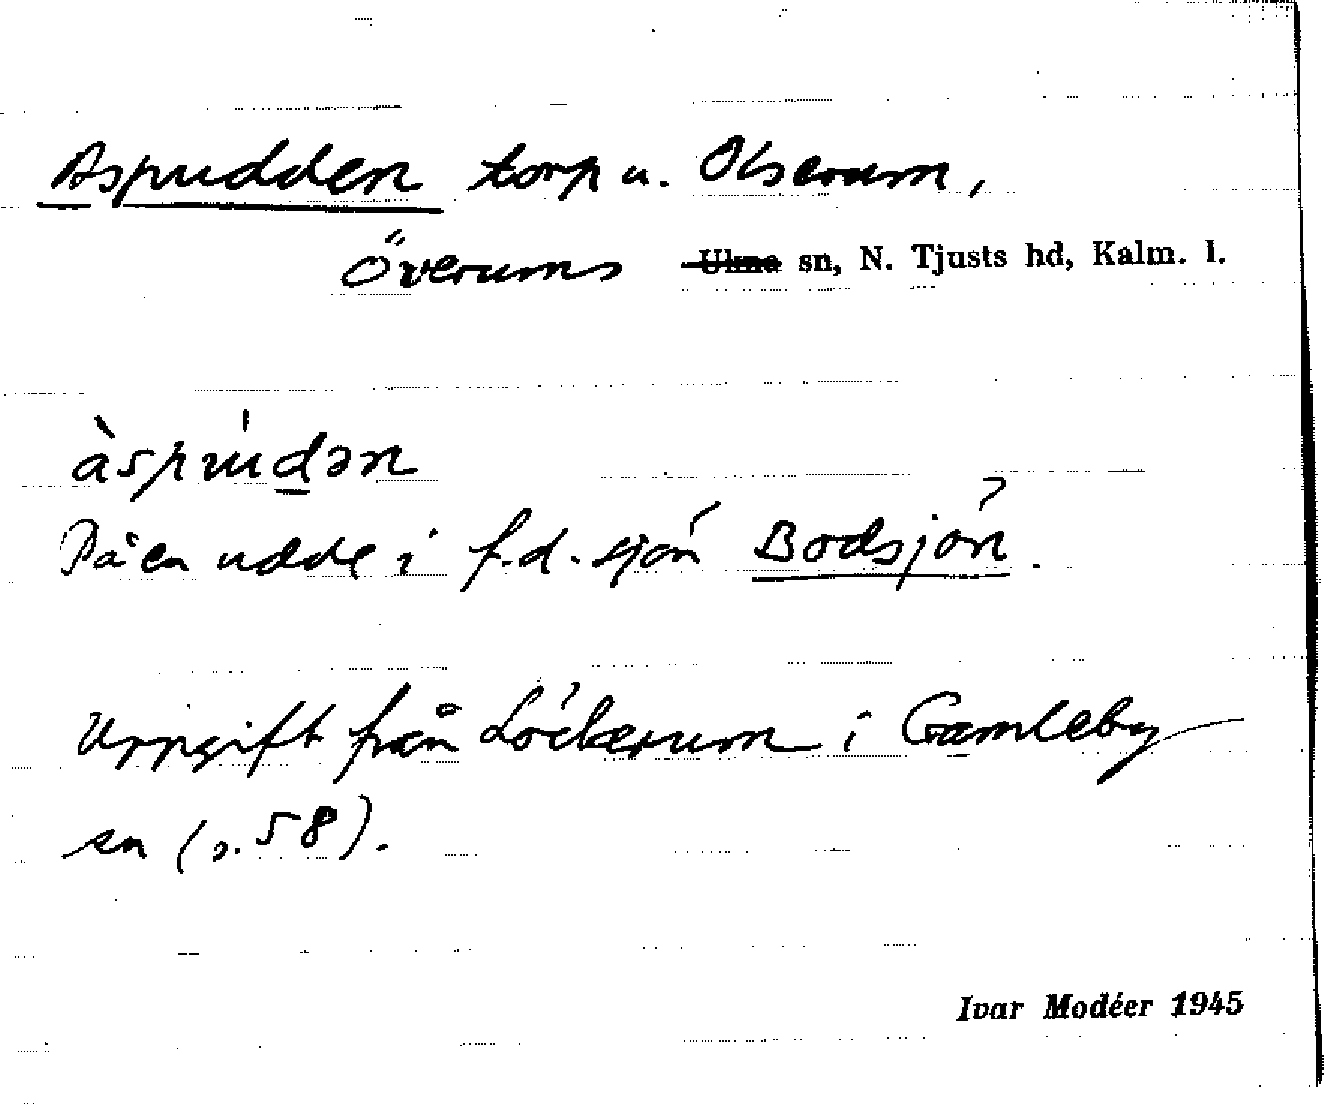 Aspudden torp u. Olserum,
Överums Ukna sn, N. Tjusts hd, Kalm. l.
àspu̍dən
På en udde i f.d. sjön Bodsjön.
Uppgift från Löckerum i Gamleby
sn (s. 58).
Ivar Modéer 1945